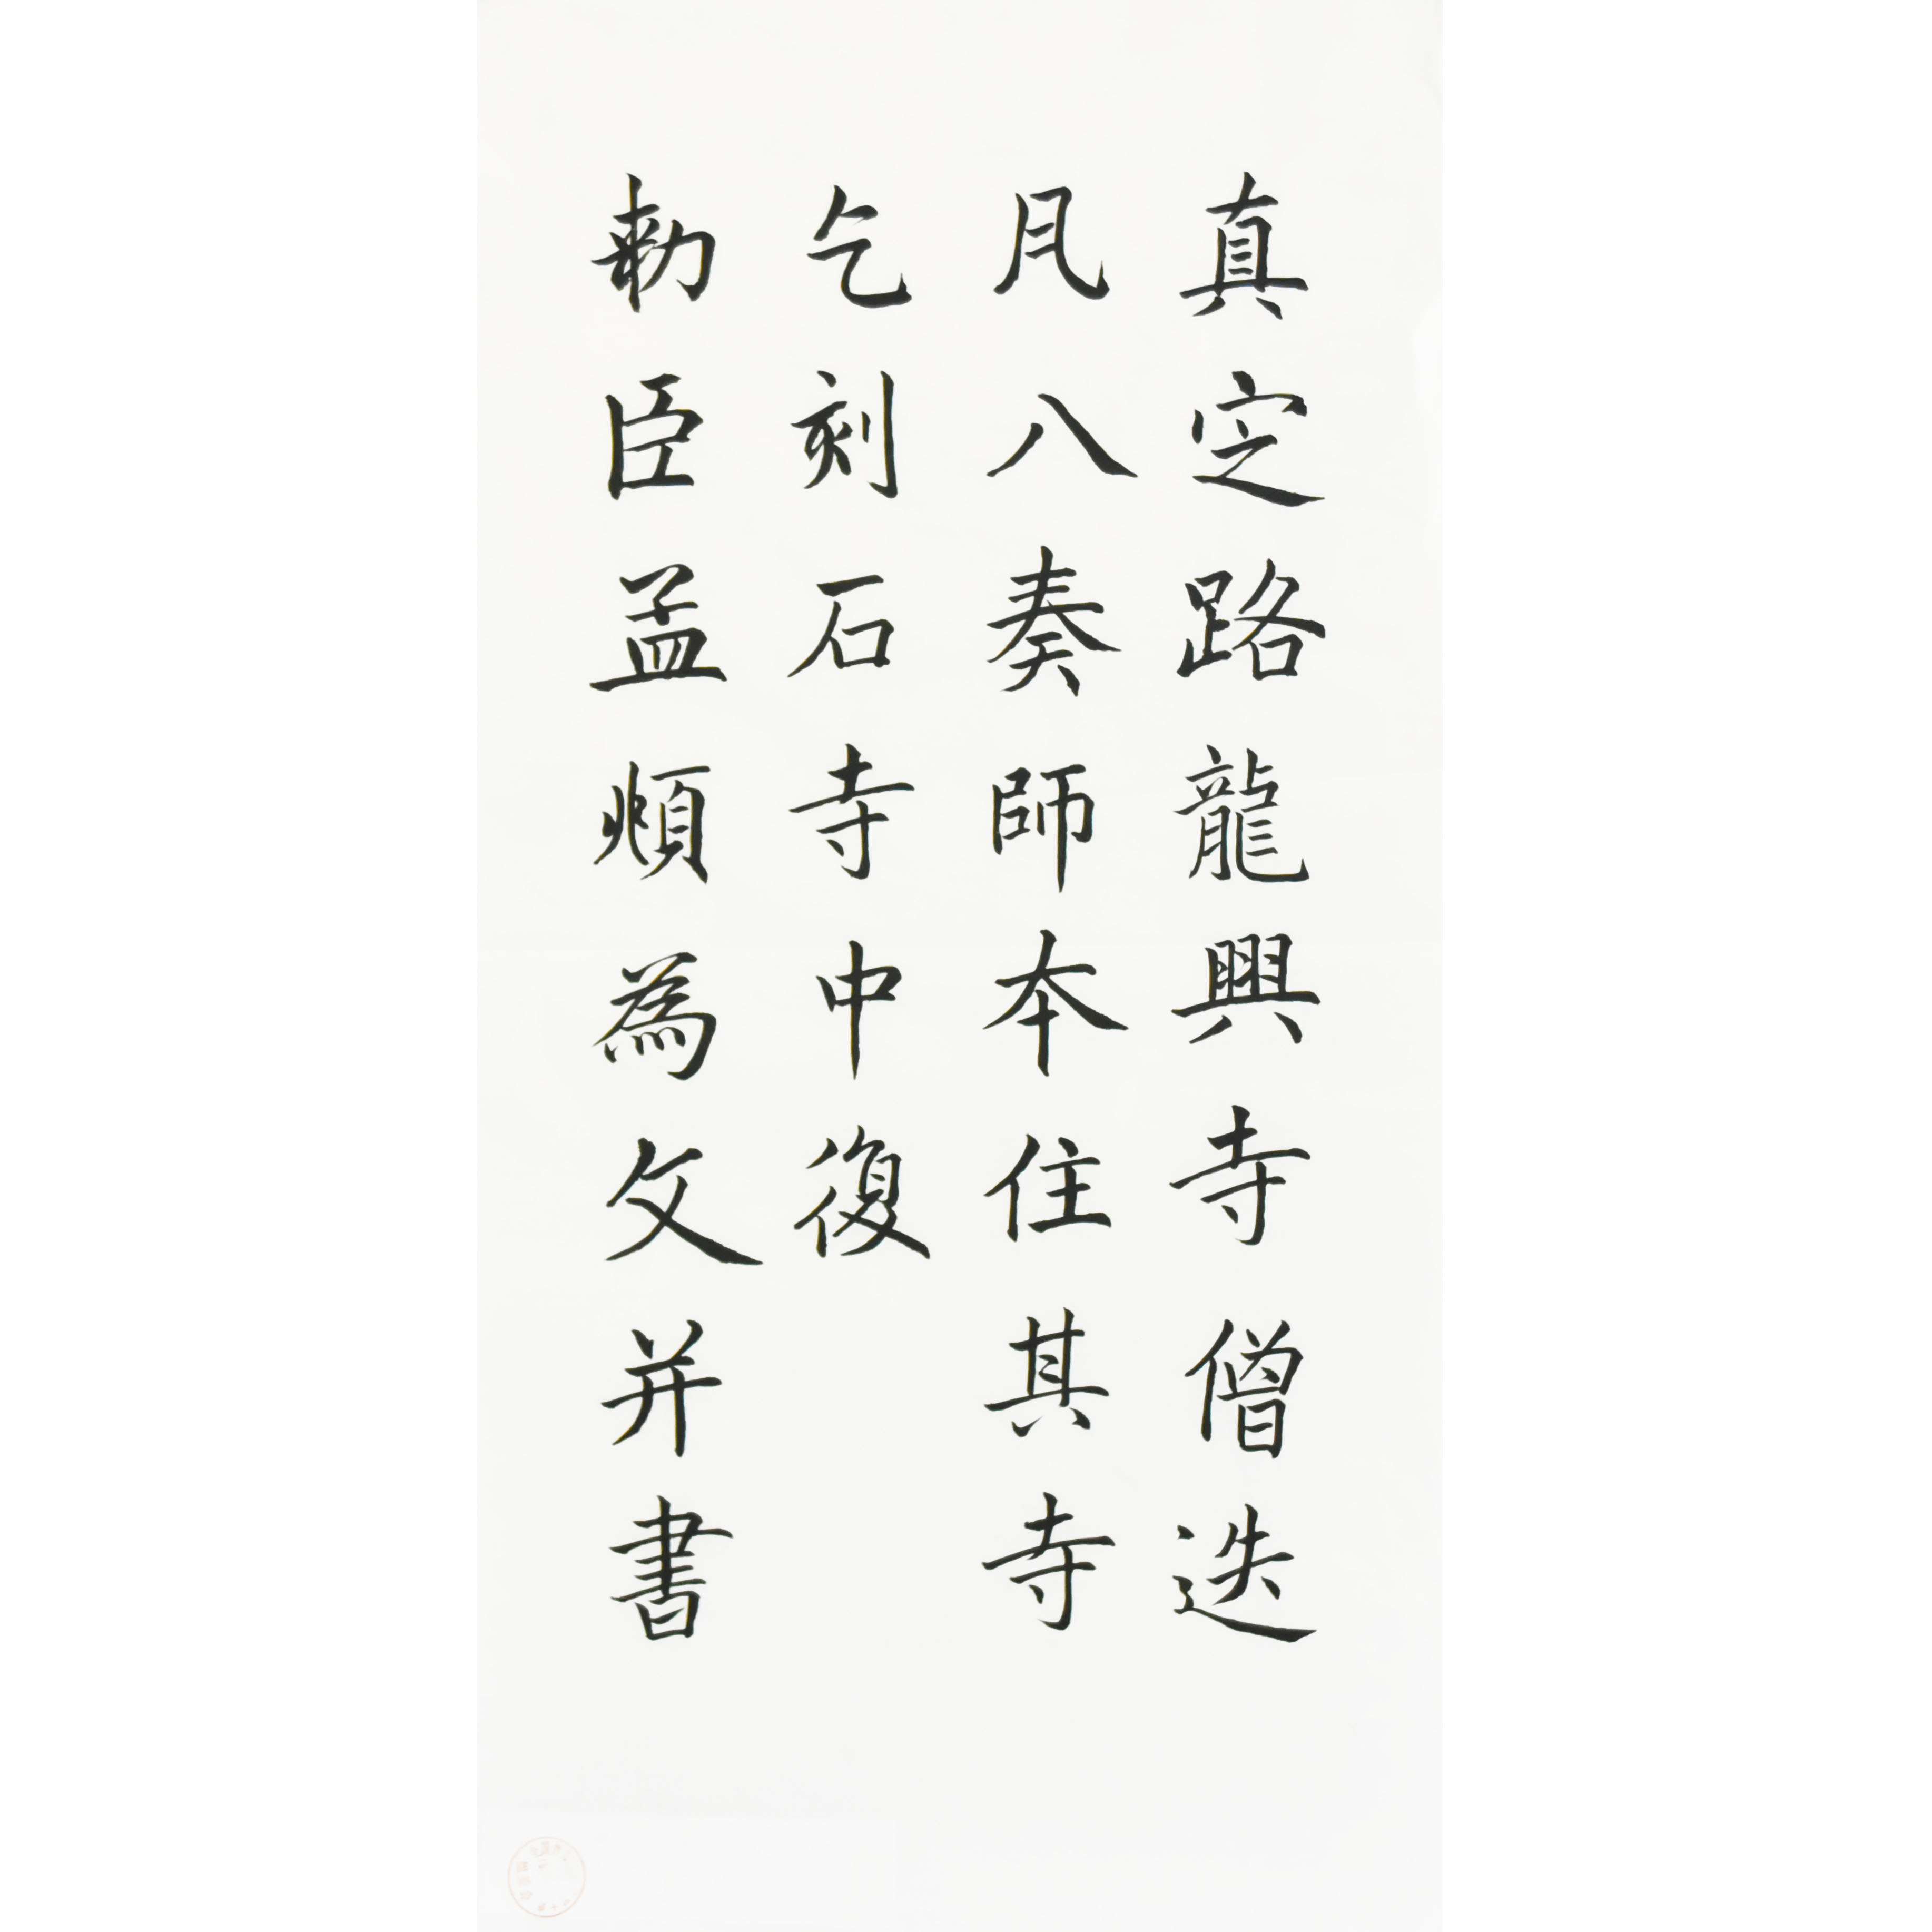 真定路龍興寺僧迭
凡八奏師本住其寺
乞刻石寺中復
勑臣孟頫為文并書